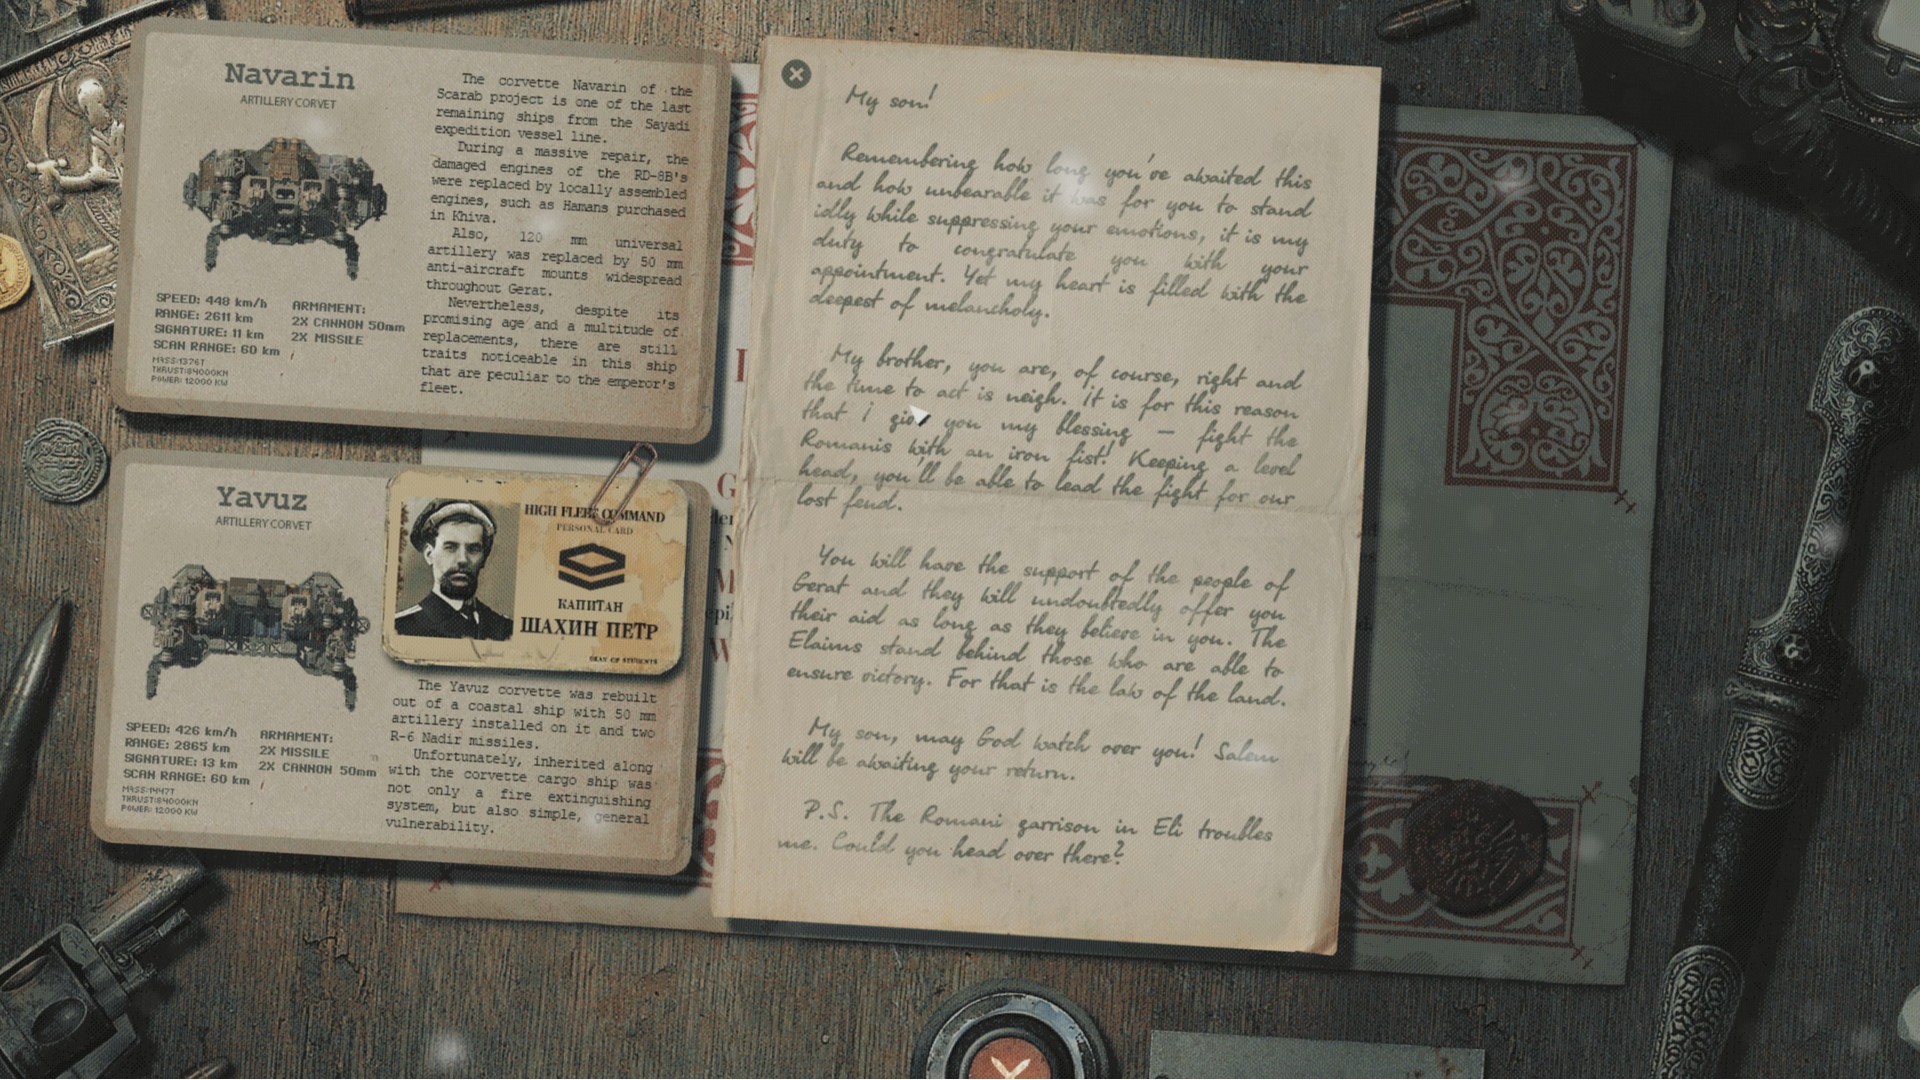 Navarin
ARTILLERY CORVET
The corvette Navarin of the
Scarab project is one of the last
remaining ships from the Sayadi
expedition vessel line.
During a massive repair, the
damaged engines of the RD-8B's
were replaced by locally assembled
engines, such as Hamans purchased
in Khiva.
Also, 120 mm universal
artillery was replaced by 50 mm
anti-aircraft mounts widespread
throughout Gerat.
Nevertheless, despite its
promising age and a multitude of
replacements, there are still
traits noticeable in this ship
that are peculiar to the emperor's
fleet.
SPEED: 448 km/h
RANGE: 2611 km
SIGNATURE: 11 km
SCAN RANGE: 60 km
MASS:1376T
THRUST:84000KN
POWER: 12000 KW
ARMAMENT:
2X CANNON 50mm
2X MISSILE
Yavuz
ARTILLERY CORVET
HIGH FLEET COMMAND
PERSONAL CARD
КАПИТАН
ШАХИН ПЕТР
The Yavuz corvette was rebuilt
out of a coastal ship with 50 mm
artillery installed on it and two
R-6 Nadir missiles.
Unfortunately, inherited along
with the corvette cargo ship was
not only a fire extinguishing
system, but also simple, general
vulnerability.
SPEED: 426 km/h
RANGE: 2865 km
SIGNATURE: 13 km
SCAN RANGE: 60 km
MASS:1447T
THRUST:84000KN
POWER: 12000 KW
ARMAMENT:
2X MISSILE
2X CANNON 50mm
My son!
Remembering how long you've awaited this
and how unbearable it was for you to stand
idly while suppressing your emotions, it is my
duty to congratulate you with your
appointment. Yet my heart is filled with the
deepest of melancholy.
My brother, you are, of course, right and
the time to act is neigh. It is for this reason
that I give you my blessing — fight the
Romanis with an iron fist! Keeping a level
head, you'll be able to lead the fight for our
lost feud.
You will have the support of the people of
Gerat and they will undoubtedly offer you
their aid as long as they believe in you. The
Elaims stand behind those who are able to
ensure victory. For that is the law of the land.
My son, may God watch over you! Salem
will be awaiting your return.
P.S. The Romani garrison in Eli troubles
me. Could you head over there?